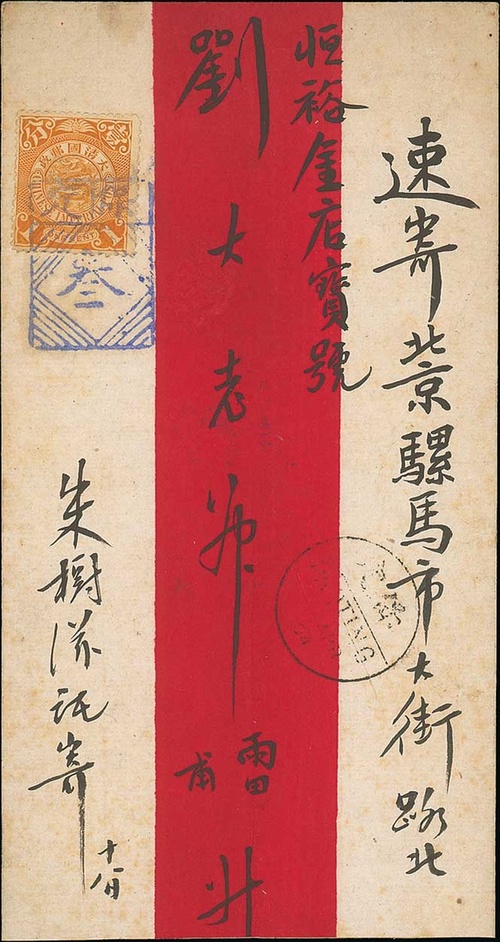 速寄北京騾馬市大街路北
恒裕金店寶號
劉大老爺
雷甫
升
朱樹滋託寄
十一月
壹
分
大清國郵政
1
叁